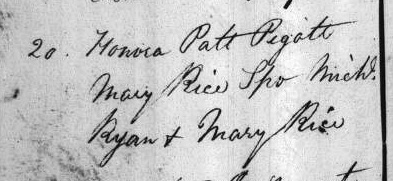 20. Honora Patt Pigott
Mary Rice Spo Michd.
Ryan & Mary Rice